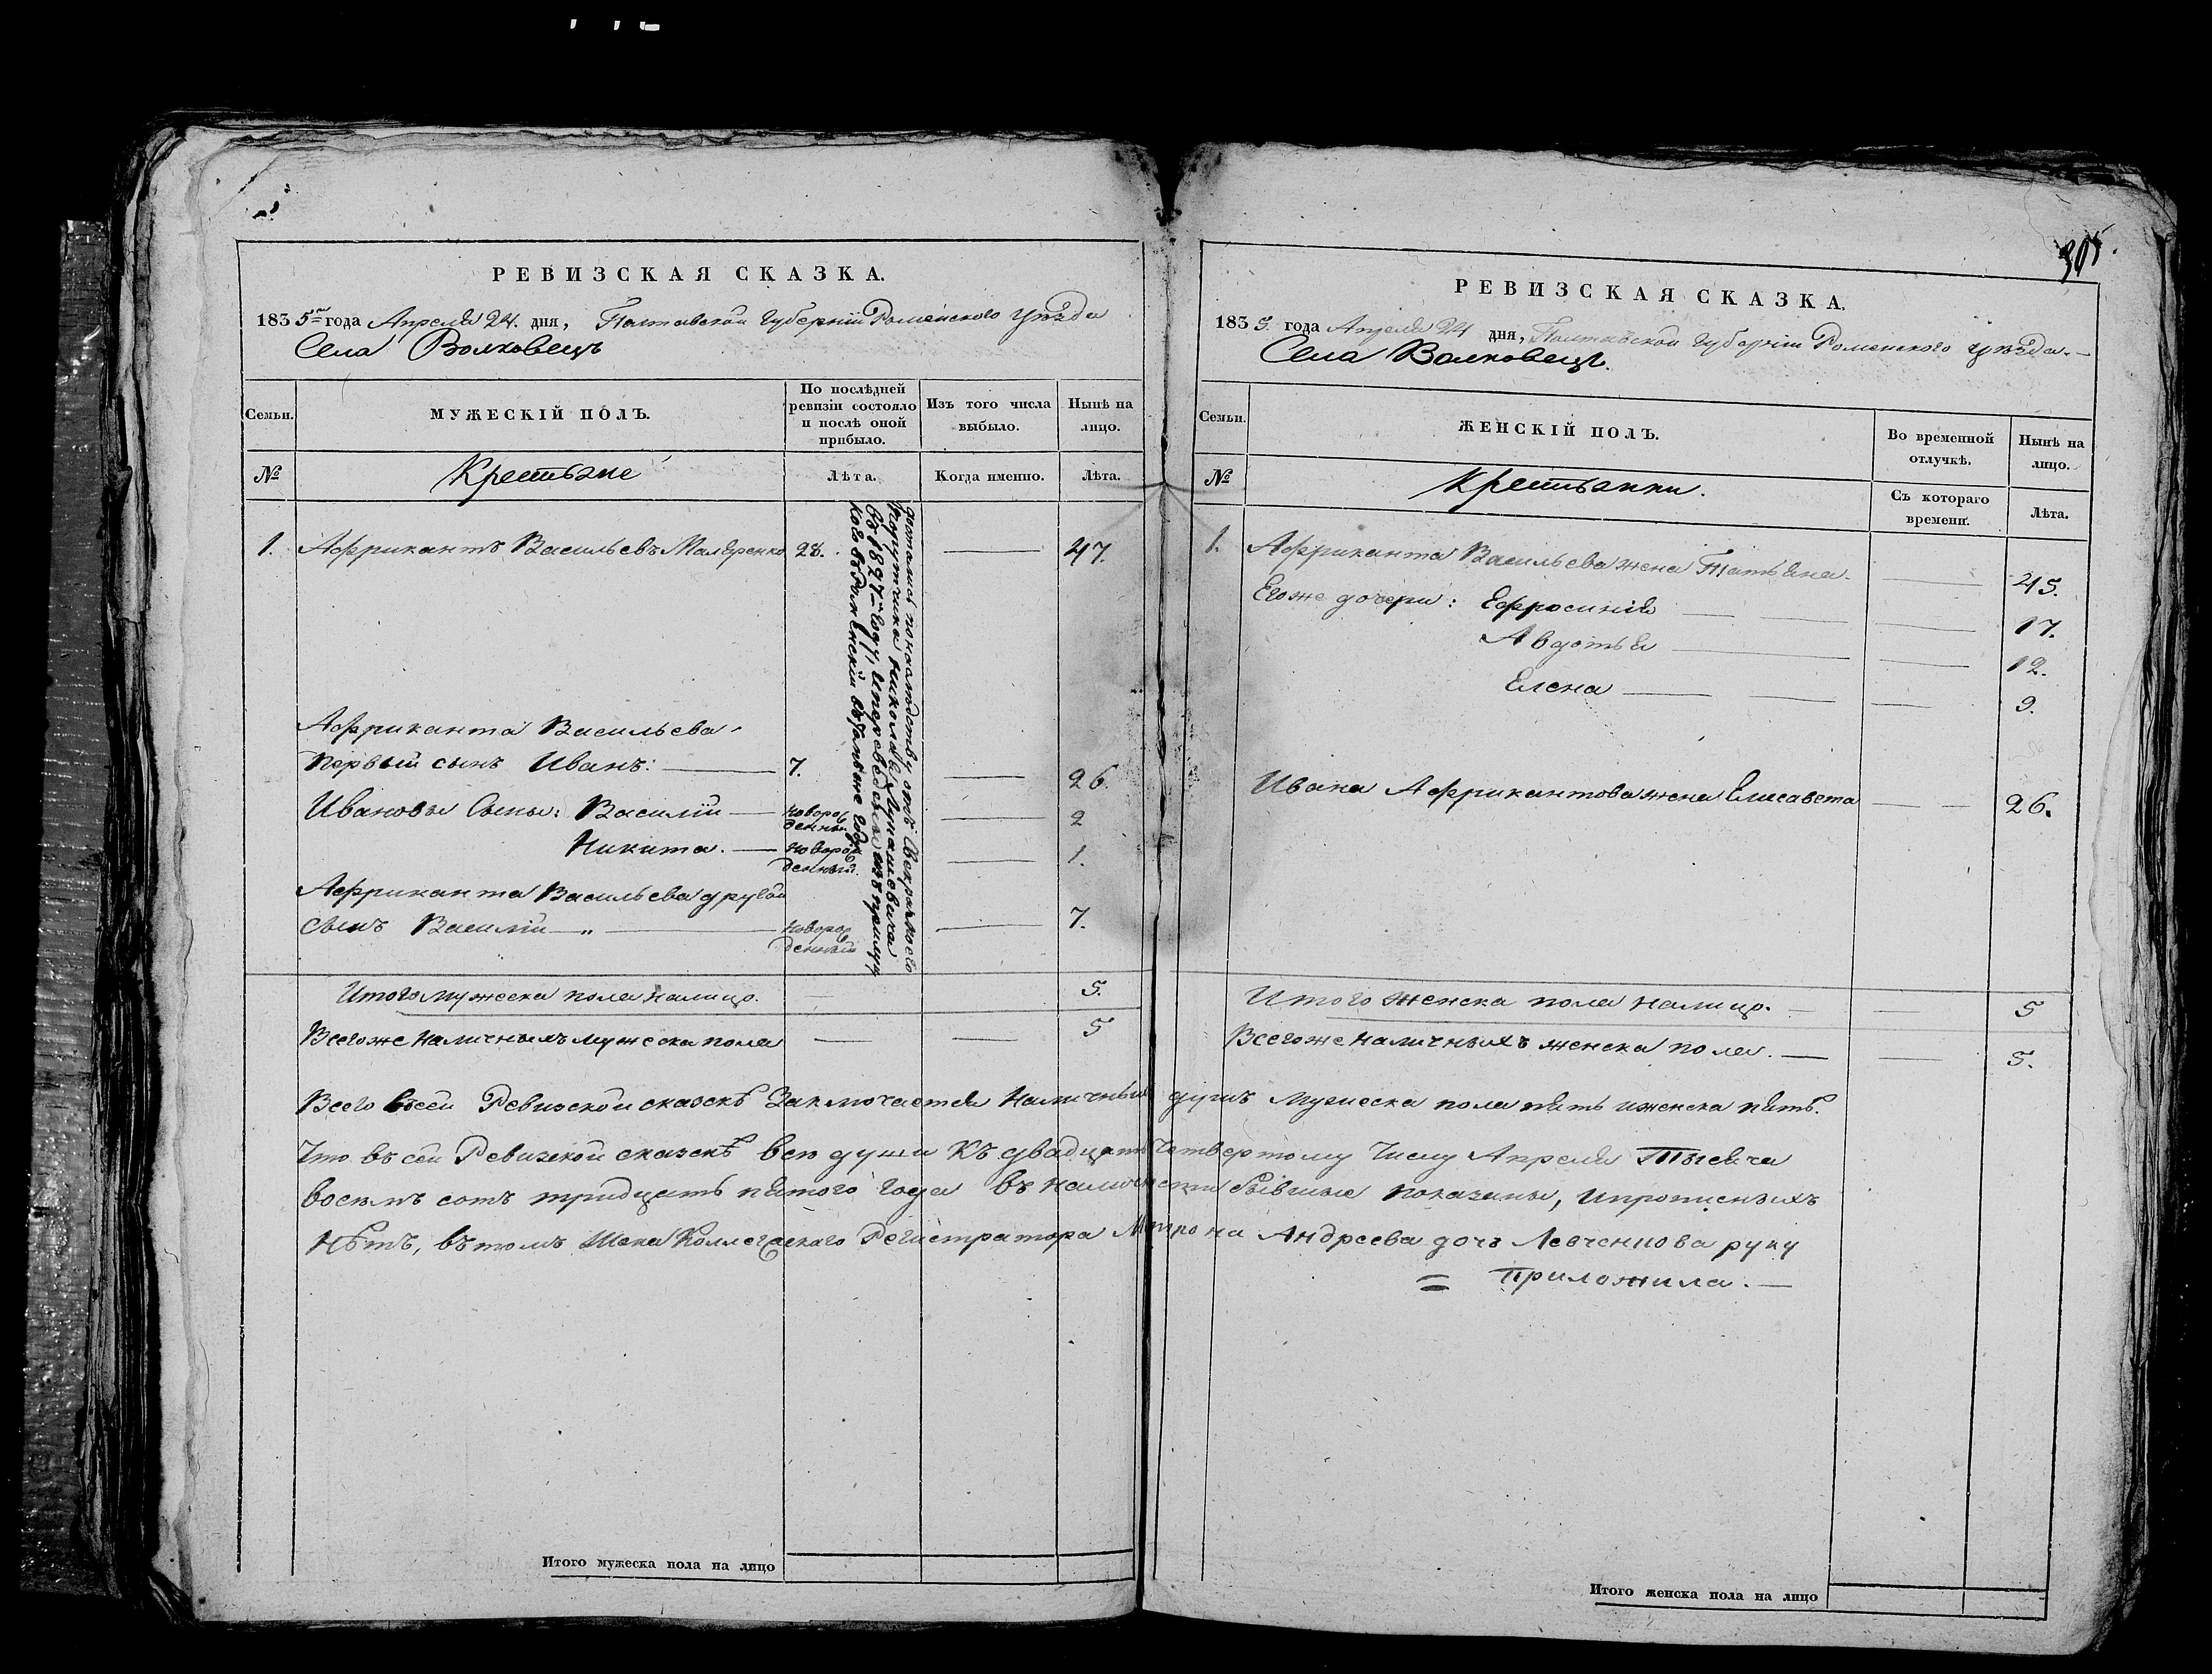 РЕВИЗСКАЯ СКАЗКА.
183 5го года Апреля 24. дня, Полтавской Губернии Роменского уѣзда
Села Волковецъ
Семьи.
МУЖЕСКІЙ ПОЛЪ.
По послѣдней ревизіи состояло и послѣ оной прибыло.
Изъ того числа выбыло.
Нынѣ на лицо.
№
Крестьяне
Лѣта.
Когда именно.
Лѣта.
1. Африкантъ Васильевъ Маляренко 28. — 47.
достались понаследству отъ
порутчика Николая
въ 1827м году, и переведены изъ
Африканта Васильева
первый сынъ Иванъ: — 7. — 26.
Ивановы Сыны: Василій — новорожденный — 2
Никита. — новорожденный. — 1.
Африканта Васильева другой
сынъ Василій — „ — новорожденный — 7.
Итого мужеска пола налицо. — 5.
Всегоже наличныхъ мужеска пола — — 5
305.
РЕВИЗСКАЯ СКАЗКА.
183 5. года Апреля 24 дня, Полтавской Губерніи Роменского уѣзда. —
Села Волковецъ.
Семьи.
ЖЕНСКІЙ ПОЛЪ.
Во временной отлучкѣ.
Нынѣ на лицо.
№
Крестьянки.
Съ котораго времени.
Лѣта.
1. Африканта Васильева жена Татьяна — — 45.
Егоже дочери: Ефросинія — — 17.
Авдотья — — 12.
Елена — — 9.
Ивана Африкантова жена Елисавета — — 26.
Итого женска пола налицо. — — 5
Всегоже наличныхъ женска пола. — — 5.
Всего въсей Ревизской сказскѣ Заключается Наличныхъ душъ Мужеска пола пять иженска пять.
Что въ сей Ревизской сказскѣ всѣ души Къ двадцать Четвертому Числу Апреля Тысяча
восемъ сотъ тридцать пятого Года въ наличности бывшие показаны, ипрописныхъ
Нѣтъ, въ томъ Жена Коллегскаго Регистратора Матрона Андреева дочь Левченкова руку
= Приложила. —
Итого мужеска пола на лицо
Итого женска пола на лицо